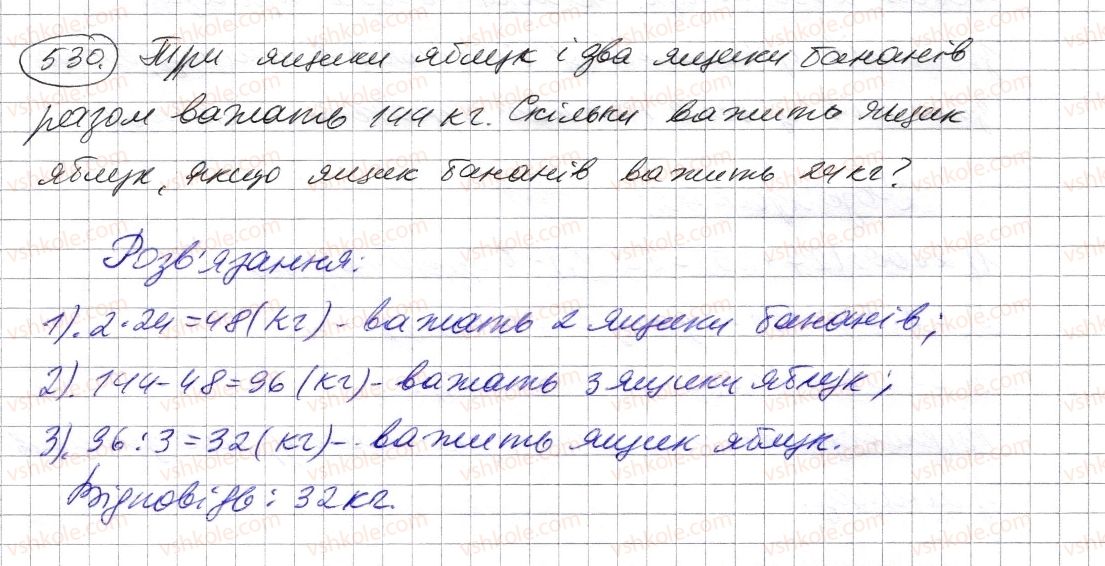 530. Три ящики яблук і два ящики бананів
разом важать 144 кг. Скільки важить ящик
яблук, якщо ящик бананів важить 24 кг?
Розв'язання:
1). 2·24=48(кг)- важать 2 ящики бананів;
2). 144-48=96(кг)- важать 3 ящики яблук;
3). 96:3=32(кг)- важить ящик яблук.
Відповідь: 32 кг.